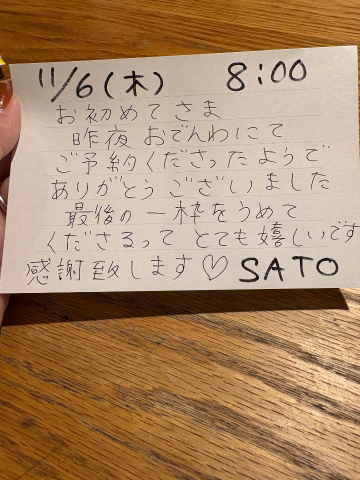 11/6(木) 8:00
お初めてさま
昨夜 おでんわにて
ご予約くださったようで
ありがとうございました
最後の一枠をうめて
くださるって とても嬉しいです
感謝致します♡ SATO